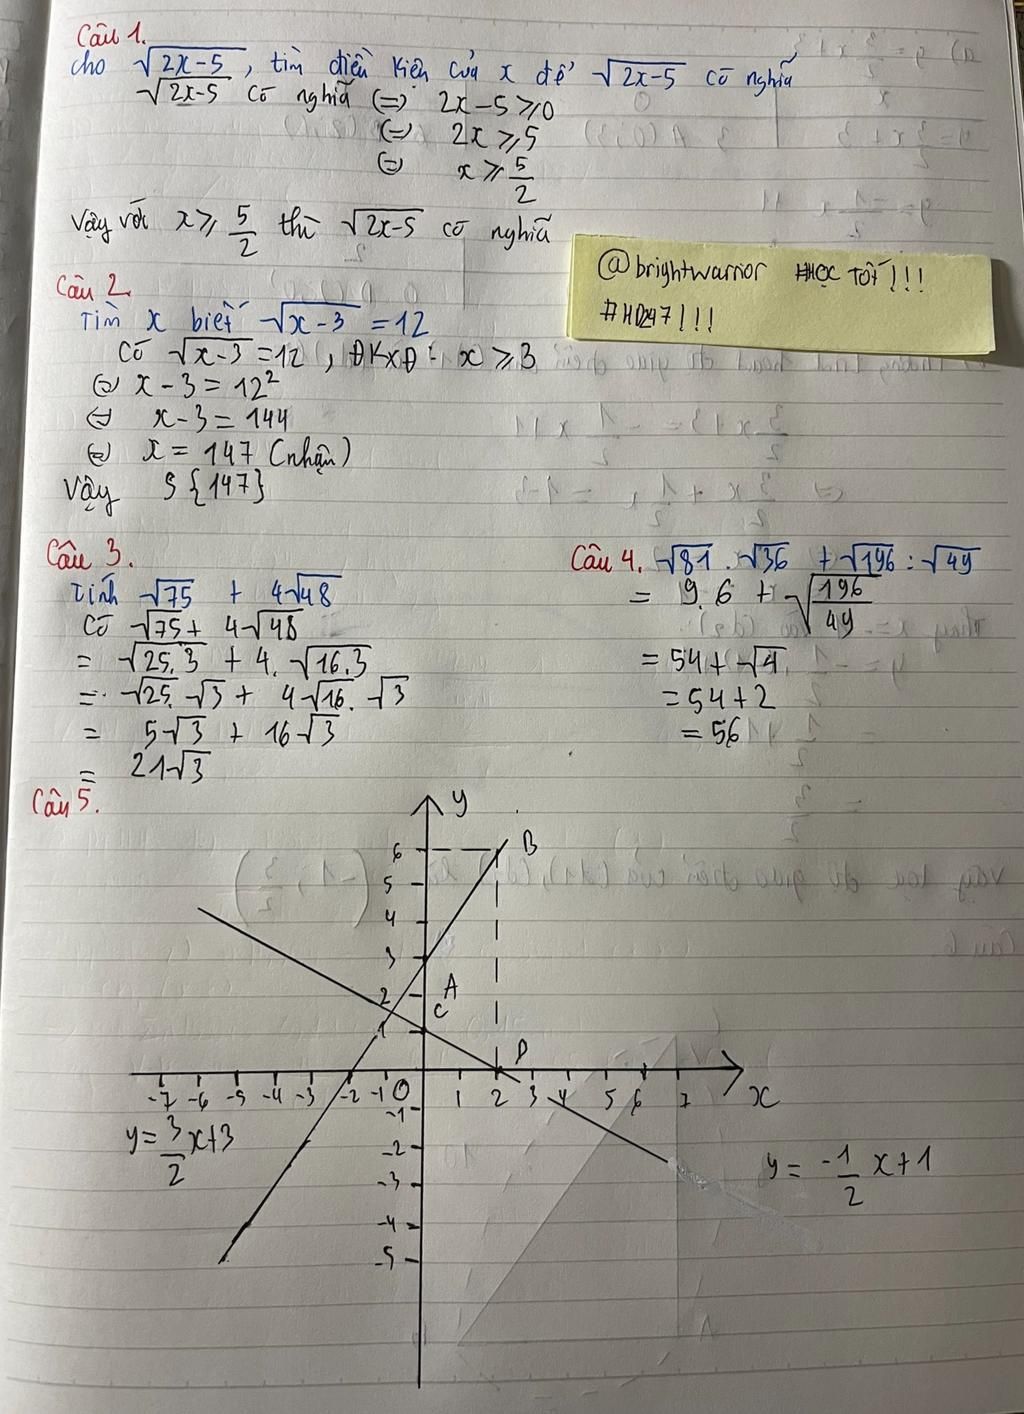 Câu 1.
cho √2x-5, tìm điều kiện của x để √2x-5 có nghĩa
√2x-5 có nghĩa (=) 2x-5 ≥ 0
(=) 2x ≥ 5
(=) x ≥ 5/2
Vậy với x ≥ 5/2 thì √2x-5 có nghĩa
@brightwarrior #HỌC TỐT!!!
#HD247!!!
Câu 2.
Tìm x biết √x-3 = 12
Có √x-3 = 12, ĐKXĐ: x ≥ 3
(=) x-3 = 12²
(=) x-3 = 144
(=) x = 147 (nhận)
Vậy S{147}
Câu 3.
Tính √75 + 4√48
Có √75 + 4√48
= √25.3 + 4.√16.3
= √25.√3 + 4√16.√3
= 5√3 + 16√3
= 21√3
Câu 4. √81.√36 + √196:√49
= 9.6 + √196/49
= 54 + √4
= 54 + 2
= 56
Câu 5.
y
6
B
5
4
3
A
2
C
1
D
-7 -6 -5 -4 -3 -2 -1 O 1 2 3 4 5 6 7 x
-1
y = 3/2 x+3
-2
-3
y = -1/2 x+1
-4
-5